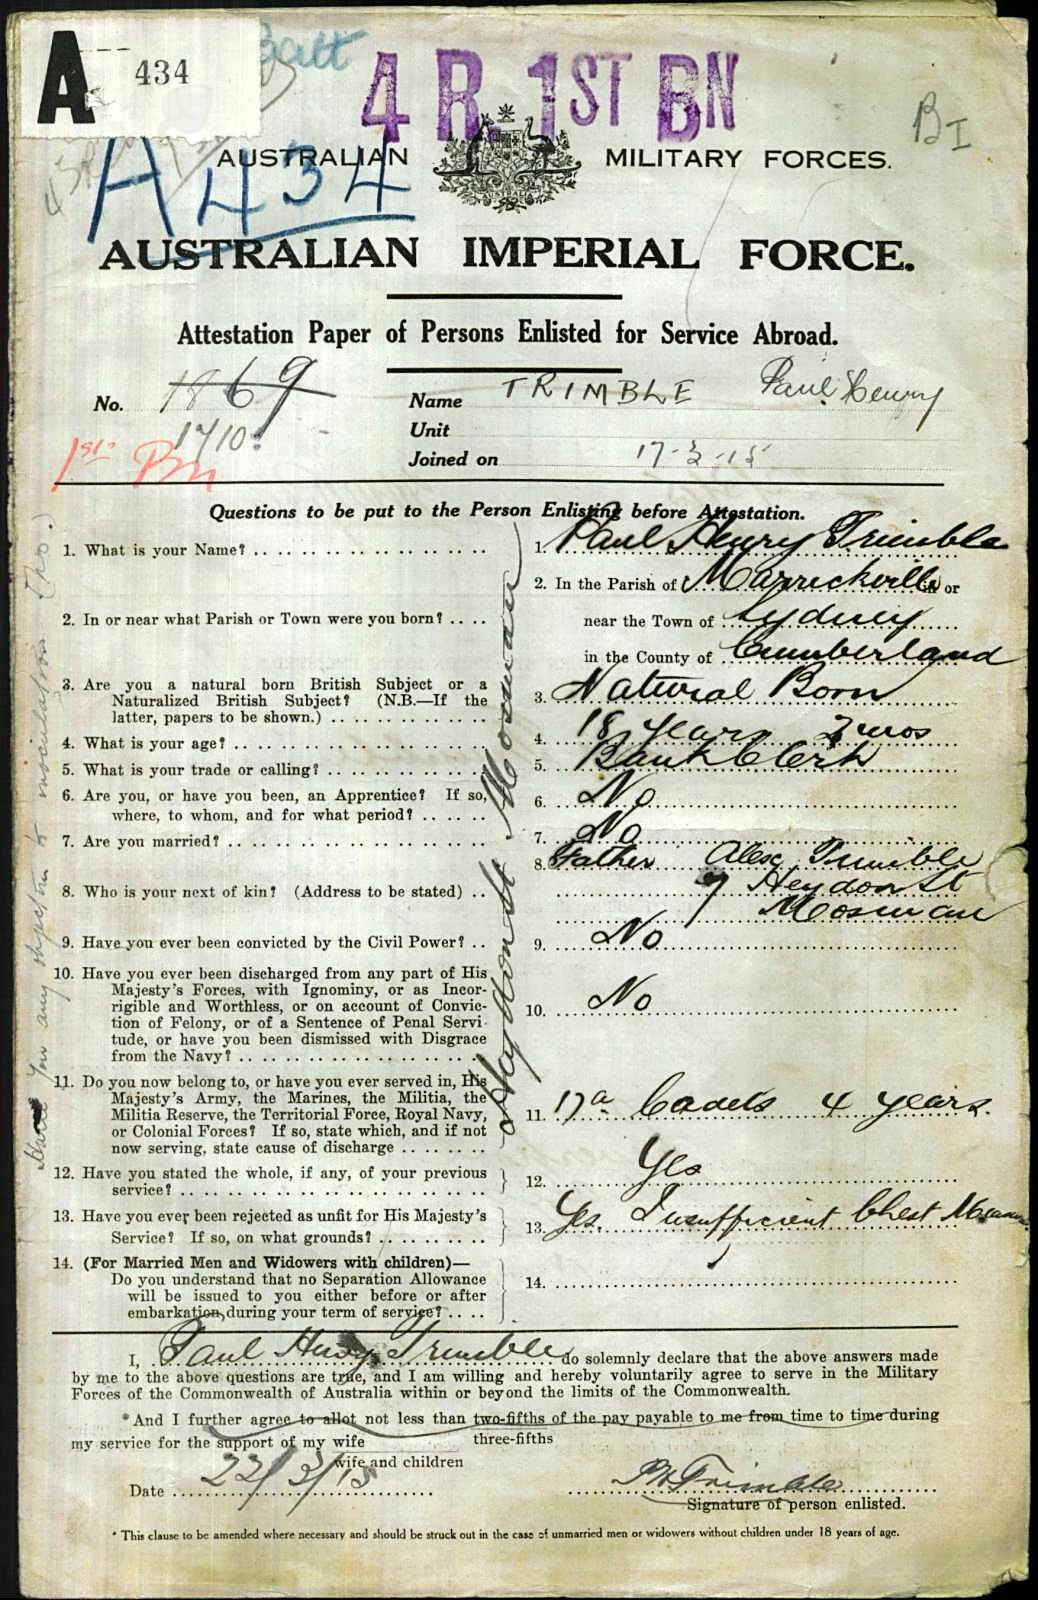 A 434 Batt
4 R 1ST BN
B I
A 434
AUSTRALIAN MILITARY FORCES.
AUSTRALIAN IMPERIAL FORCE.
Attestation Paper of Persons Enlisted for Service Abroad.
No. 1869 Name TRIMBLE Paul Henry
1710 Unit
1st Bn Joined on 17-3-15
Questions to be put to the Person Enlisting before Attestation.
1. What is your Name? 1. Paul Henry Trimble
2. In or near what Parish or Town were you born? 2. In the Parish of Marrickville in or
near the Town of Sydney
in the County of Cumberland
3. Are you a natural born British Subject or a 3. Natural Born
Naturalized British Subject? (N.B.—If the
latter, papers to be shown.)
4. What is your age? 4. 18 years 2 mos
5. What is your trade or calling? 5. Bank Clerk
6. Are you, or have you been, an Apprentice? If so, 6. No
where, to whom, and for what period?
7. Are you married? 7. No
8. Who is your next of kin? (Address to be stated) 8. Father Alex Trimble
7 Heydon St
Mosman
9. Have you ever been convicted by the Civil Power? 9. No
10. Have you ever been discharged from any part of His 10. No
Majesty's Forces, with Ignominy, or as Incor-
rigible and Worthless, or on account of Convic-
tion of Felony, or of a Sentence of Penal Servi-
tude, or have you been dismissed with Disgrace
from the Navy?
11. Do you now belong to, or have you ever served in, His 11. 17a Cadets 4 years.
Majesty's Army, the Marines, the Militia, the
Militia Reserve, the Territorial Force, Royal Navy,
or Colonial Forces? If so, state which, and if not
now serving, state cause of discharge
12. Have you stated the whole, if any, of your previous 12. Yes
service?
13. Have you ever been rejected as unfit for His Majesty's 13. Yes. Insufficient Chest
Service? If so, on what grounds?
14. (For Married Men and Widowers with children)— 14.
Do you understand that no Separation Allowance
will be issued to you either before or after
embarkation during your term of service?
Heydon St Mosman
Have You any objection to inoculation (No.)
I, Paul Henry Trimble do solemnly declare that the above answers made
by me to the above questions are true, and I am willing and hereby voluntarily agree to serve in the Military
Forces of the Commonwealth of Australia within or beyond the limits of the Commonwealth.
*And I further agree to allot not less than two-fifths of the pay payable to me from time to time during
my service for the support of my wife three-fifths
wife and children
Date 22/3/15 PH Trimble
Signature of person enlisted.
* This clause to be amended where necessary and should be struck out in the case of unmarried men or widowers without children under 18 years of age.